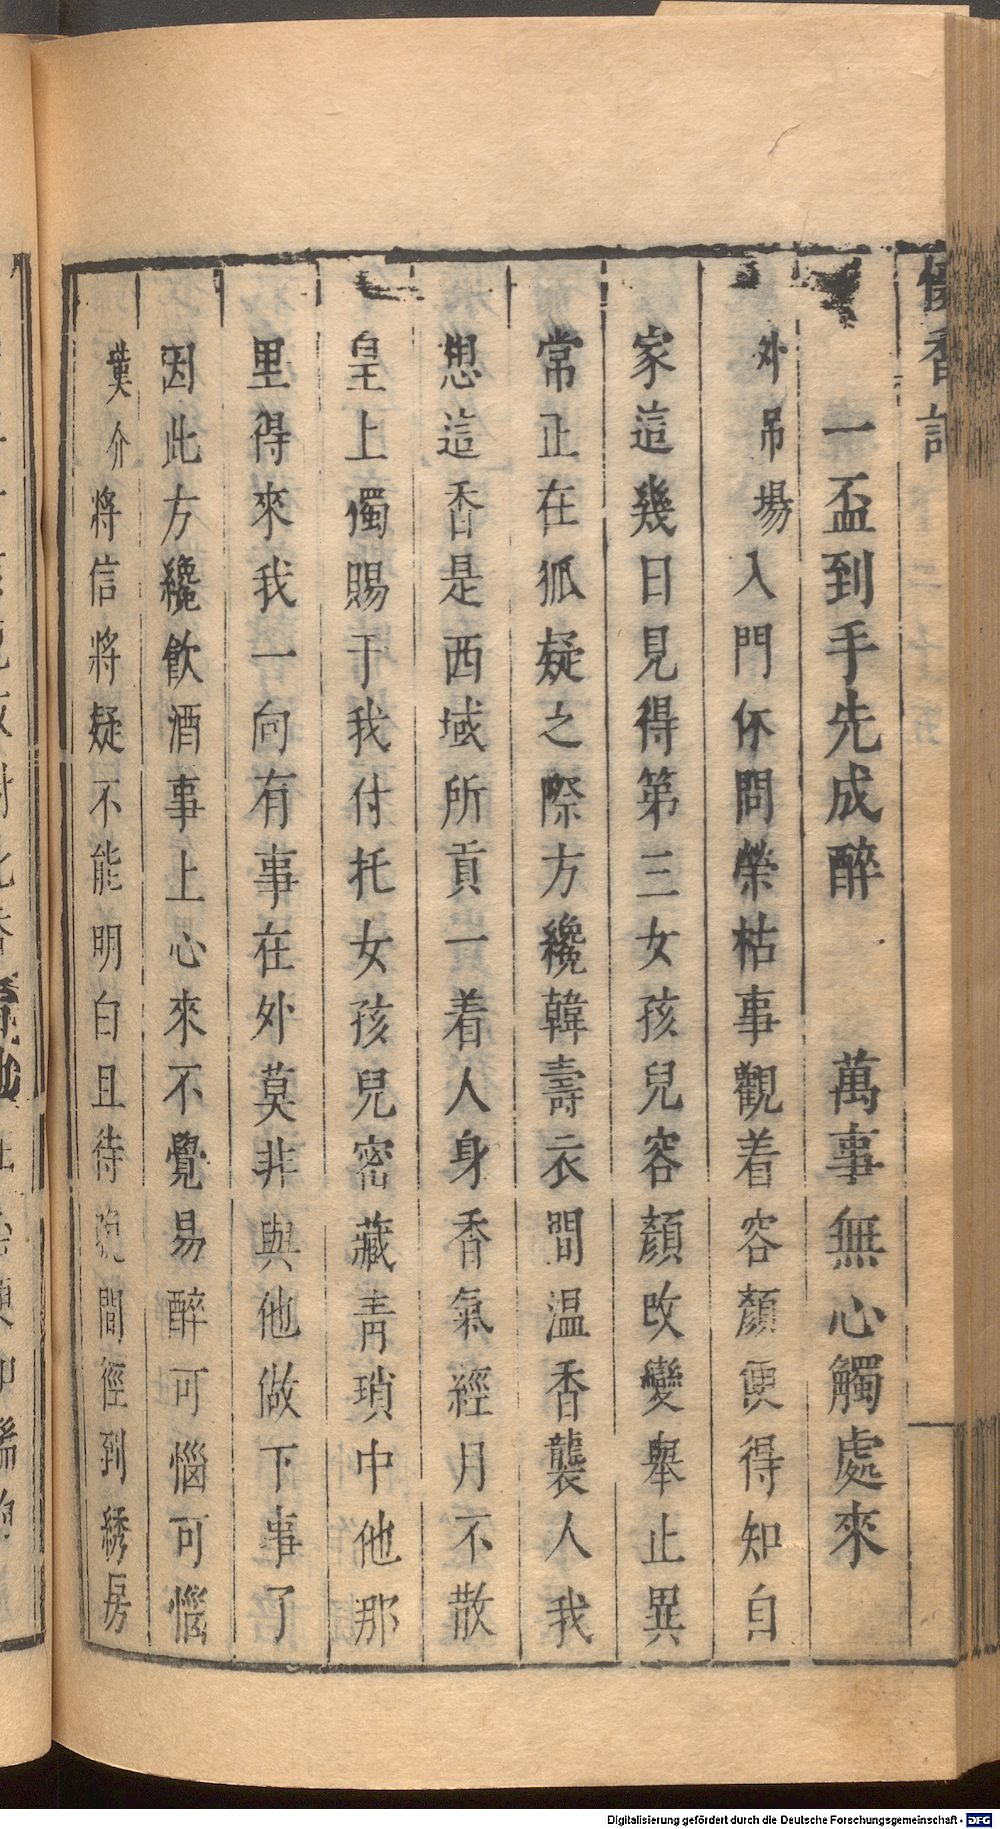 懷香記
一盃到手先成醉　萬事無心觸處來
外吊場入門休問榮枯事觀着容顏便得知自
家這幾日見得第三女孩兒容顏改變舉止異
常正在狐疑之際方纔韓壽衣間温香襲人我
想這香是西域所貢一着人身香氣經月不散
皇上獨賜于我我付托女孩兒密藏青瑣中他那
里得來我一向有事在外莫非與他做下事了
因此方纔飲酒事上心來不覺易醉可惱可惱
介將信將疑不能明白且待晚間徑到綉房
Digitalisierung gefördert durch die Deutsche Forschungsgemeinschaft - DFG